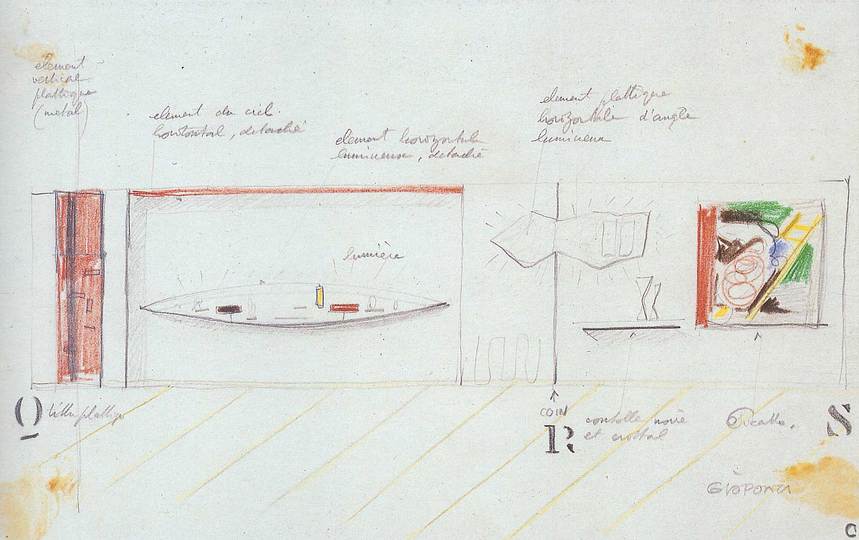 element
vertical
plastique
(metal)
element du ciel
horizontal, detaché
element horizontale
lumineuse, detaché
element plastique
horizontale d'angle
lumineux
lumière
Q
COIN
R
console noire
et cristal
Picasso.
S
Gio Ponti